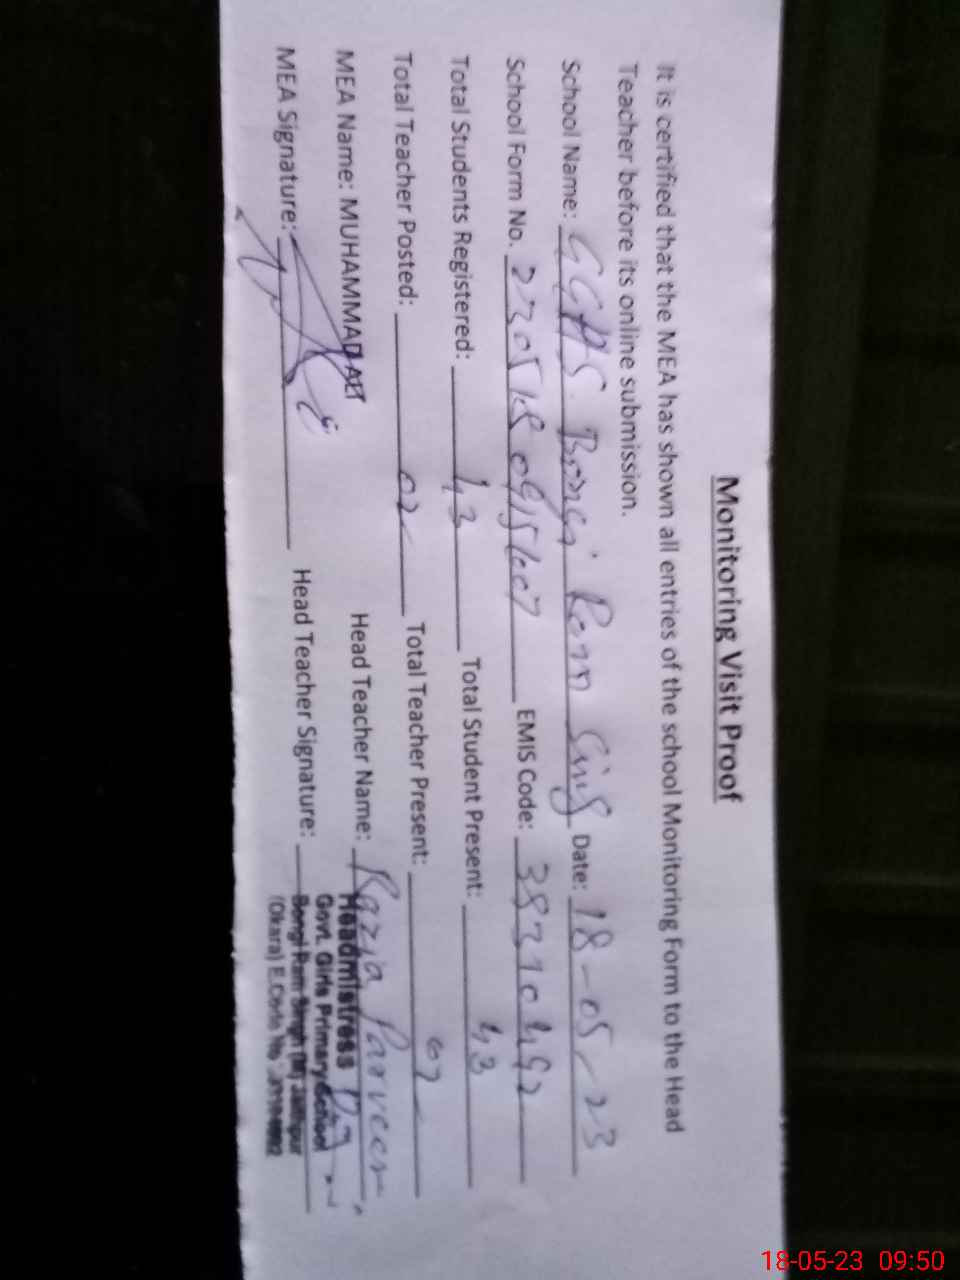 Monitoring Visit Proof
It is certified that the MEA has shown all entries of the school Monitoring Form to the Head
Teacher before its online submission.
School Name: GGPS Bongi Ram Sing Date: 18-05-23
School Form No. EMIS Code:
Total Students Registered: 43 Total Student Present: 43
Total Teacher Posted: 02 Total Teacher Present: 02
MEA Name: MUHAMMAD ALI Head Teacher Name: Razia Parveen
MEA Signature: Head Teacher Signature:
Headmistress
Govt. Girls Primary School
Bongi Ram Singh
(Okara) E.Code No
18-05-23 09:50